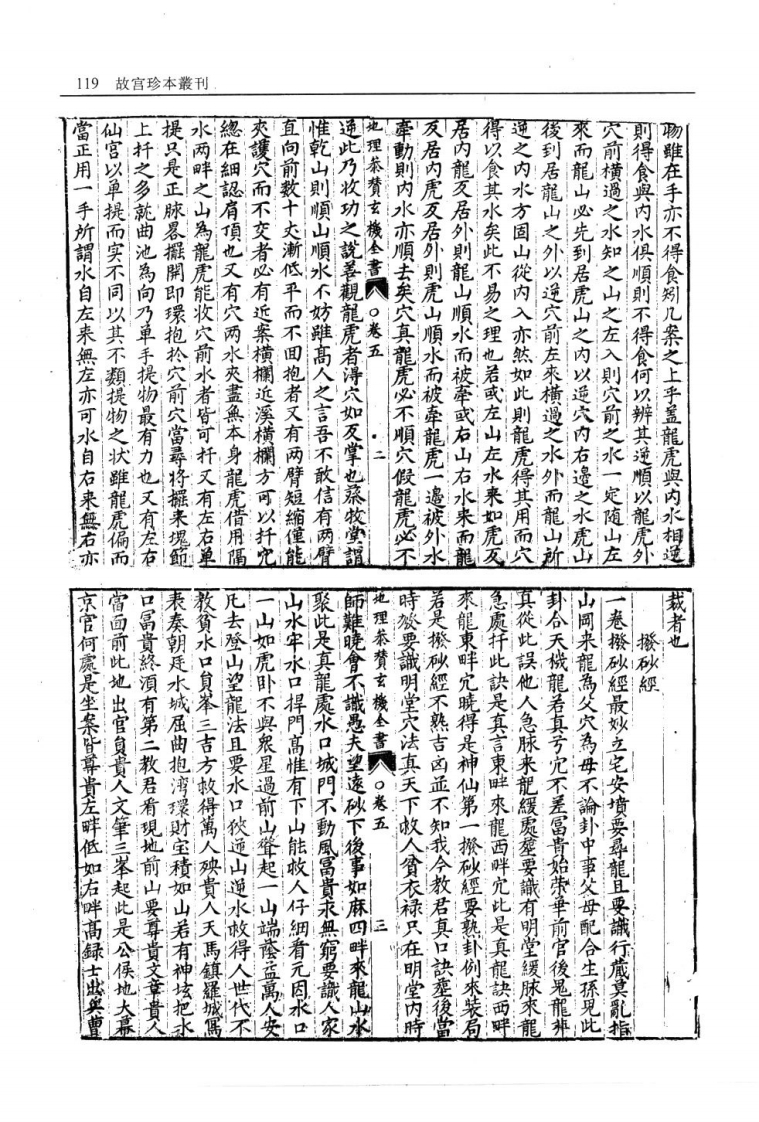 119 故宫珍本叢刊
物雖在手亦不得食矧几案之上乎盖龍虎與内水相逆
則得食與内水俱順則不得食何以辨其逆順以龍虎外
穴前橫過之水知之山之左入則穴前之水一定随山左
來而龍山必先到居虎山之内以逆穴内右邊之水虎山
後到居龍山之外以逆穴前左來橫過之水外而龍山所
逆之内水方固山從内入亦然如此則龍虎得其用而穴
得以食其水矣此不易之理也若或左山左水来如虎反
居内龍反居外則龍山順水而被牽或右山右水来而龍
反居内虎反居外則虎山順水而被牽龍虎一邉被外水
牽動則内水亦順去矣穴真龍虎必不順穴假龍虎必不
地理叅賛玄機全書 ○卷五 二
逆此乃收功之說善觀龍虎者得穴如反掌也蔡牧堂謂
惟乾山則順山順水不妨雖髙人之言吾不敢信有两臂
直向前數十丈漸低平而不囬抱者又有两臂短縮僅能
夾護穴而不交者必有近案橫欄近溪橫欄方可以扦穴
總在細認肩頂也又有穴两水夾盡無本身龍虎借用隔
水两畔之山為龍虎能收穴前水者皆可杆又有左右单
提只是正脉畧擺開即環抱扵穴前穴當尋将擺来塊節
上扦之多就曲池為向乃单手提物最有力也又有左右
仙宫以单提而实不同以其不類提物之状雖龍虎偏而
當正用一手所謂水自左来無左亦可水自右来無右亦
裁者也
撥砂經
一卷撥砂經最妙立宅安墳要尋龍且要識行藏莫亂指
山岡来龍為父穴為母不論卦中事父母配合生孫児此
卦合天機龍若真兮穴不差冨貴始榮華前官後鬼龍辨
真從此誤他人急脉来龍緩處塟要識有明堂緩脉來龍
急處扦此訣是真言東畔來龍西畔穴此是真龍訣西畔
來龍東畔穴曉得是神仙第一撥砂經要熟卦例來装局
若是撥砂經不熟吉凶並不知我今教君真口訣塟後當
時發要識明堂穴法真天下救人貧衣禄只在明堂内時
地理叅賛玄機全書 ○卷五 三
師難曉會不識愚夫望遠砂下後事如麻四畔來龍山水
聚此是真龍處水口城門不動風冨貴永無窮要識人家
山水牢水口捍門髙惟有下山能救人仔細看元因水口
一山如虎卧不與衆星過前山聳起一山端蔭益萬人安
凡去登山望龍法且要水口狹逆山逆水救得人世代不
教貧水口貟峯三吉方救得萬人殃貴人天馬鎮羅城冩
表奏朝廷水城屈曲抱湾環財宝積如山若有神垓把水
口冨貴終湏有第二教君看現地前山要尊貴文章貴人
當面前此地出官員貴人文筆三峯起此是公侯地大幕
京官何處是坐案皆尊貴左畔低如右畔髙録士出與曹